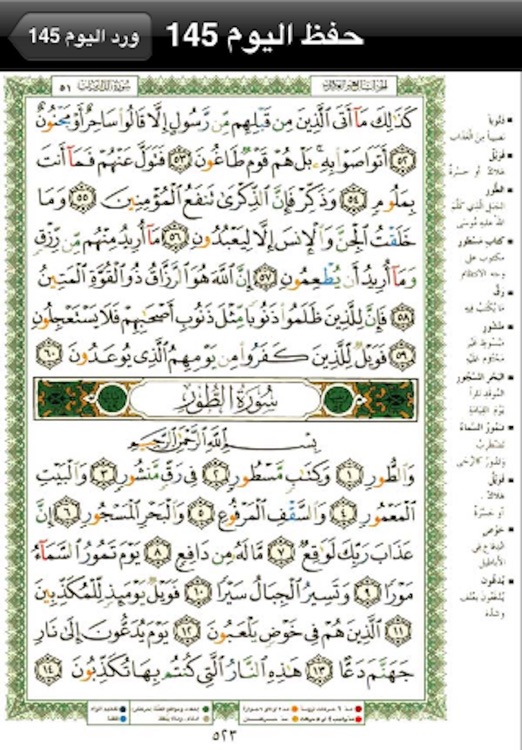 حفظ اليوم 145
ورد اليوم 145
سورة الذاريات ٥١
كَذَٰلِكَ مَآ أَتَى ٱلَّذِينَ مِن قَبۡلِهِم مِّن رَّسُولٍ إِلَّا قَالُواْ سَاحِرٌ أَوۡ مَجۡنُونٌ
٥٢ أَتَوَاصَوۡاْ بِهِۦۚ بَلۡ هُمۡ قَوۡمٞ طَاغُونَ ٥٣ فَتَوَلَّ عَنۡهُمۡ فَمَآ أَنتَ
بِمَلُومٖ ٥٤ وَذَكِّرۡ فَإِنَّ ٱلذِّكۡرَىٰ تَنفَعُ ٱلۡمُؤۡمِنِينَ ٥٥ وَمَا
خَلَقۡتُ ٱلۡجِنَّ وَٱلۡإِنسَ إِلَّا لِيَعۡبُدُونِ ٥٦ مَآ أُرِيدُ مِنۡهُم مِّن رِّزۡقٖ
وَمَآ أُرِيدُ أَن يُطۡعِمُونِ ٥٧ إِنَّ ٱللَّهَ هُوَ ٱلرَّزَّاقُ ذُو ٱلۡقُوَّةِ ٱلۡمَتِينُ
٥٨ فَإِنَّ لِلَّذِينَ ظَلَمُواْ ذَنُوبٗا مِّثۡلَ ذَنُوبِ أَصۡحَٰبِهِمۡ فَلَا يَسۡتَعۡجِلُونِ
٥٩ فَوَيۡلٞ لِّلَّذِينَ كَفَرُواْ مِن يَوۡمِهِمُ ٱلَّذِي يُوعَدُونَ ٦٠
سُورَةُ الطُّورِ
بِسۡمِ ٱللَّهِ ٱلرَّحۡمَٰنِ ٱلرَّحِيمِ
وَٱلطُّورِ ١ وَكِتَٰبٖ مَّسۡطُورٖ ٢ فِي رَقّٖ مَّنشُورٖ ٣ وَٱلۡبَيۡتِ
ٱلۡمَعۡمُورِ ٤ وَٱلسَّقۡفِ ٱلۡمَرۡفُوعِ ٥ وَٱلۡبَحۡرِ ٱلۡمَسۡجُورِ ٦ إِنَّ
عَذَابَ رَبِّكَ لَوَٰقِعٞ ٧ مَّا لَهُۥ مِن دَافِعٖ ٨ يَوۡمَ تَمُورُ ٱلسَّمَآءُ
مَوۡرٗا ٩ وَتَسِيرُ ٱلۡجِبَالُ سَيۡرٗا ١٠ فَوَيۡلٞ يَوۡمَئِذٖ لِّلۡمُكَذِّبِينَ
١١ ٱلَّذِينَ هُمۡ فِي خَوۡضٖ يَلۡعَبُونَ ١٢ يَوۡمَ يُدَعُّونَ إِلَىٰ نَارِ
جَهَنَّمَ دَعًّا ١٣ هَٰذِهِ ٱلنَّارُ ٱلَّتِي كُنتُم بِهَا تُكَذِّبُونَ ١٤
ذنوبا
نصيبا من العذاب
فويل
هلاك أو حسرة
الطور
الجبل الذي كلم
الله عليه موسى
كتاب مسطور
مكتوب على
وجه الانتظام
رق
ما يكتب فيه
منشور
مبسوط غير
مختوم عليه
البحر المسجور
الموقد نارا
يوم القيامة
تمور السماء
تضطرب
وتدور كالرحى
فويل
هلاك
أو حسرة
خوض
اندفاع في
الأباطيل
يدعون
يدفعون بعنف
وشدة
٥٢٣